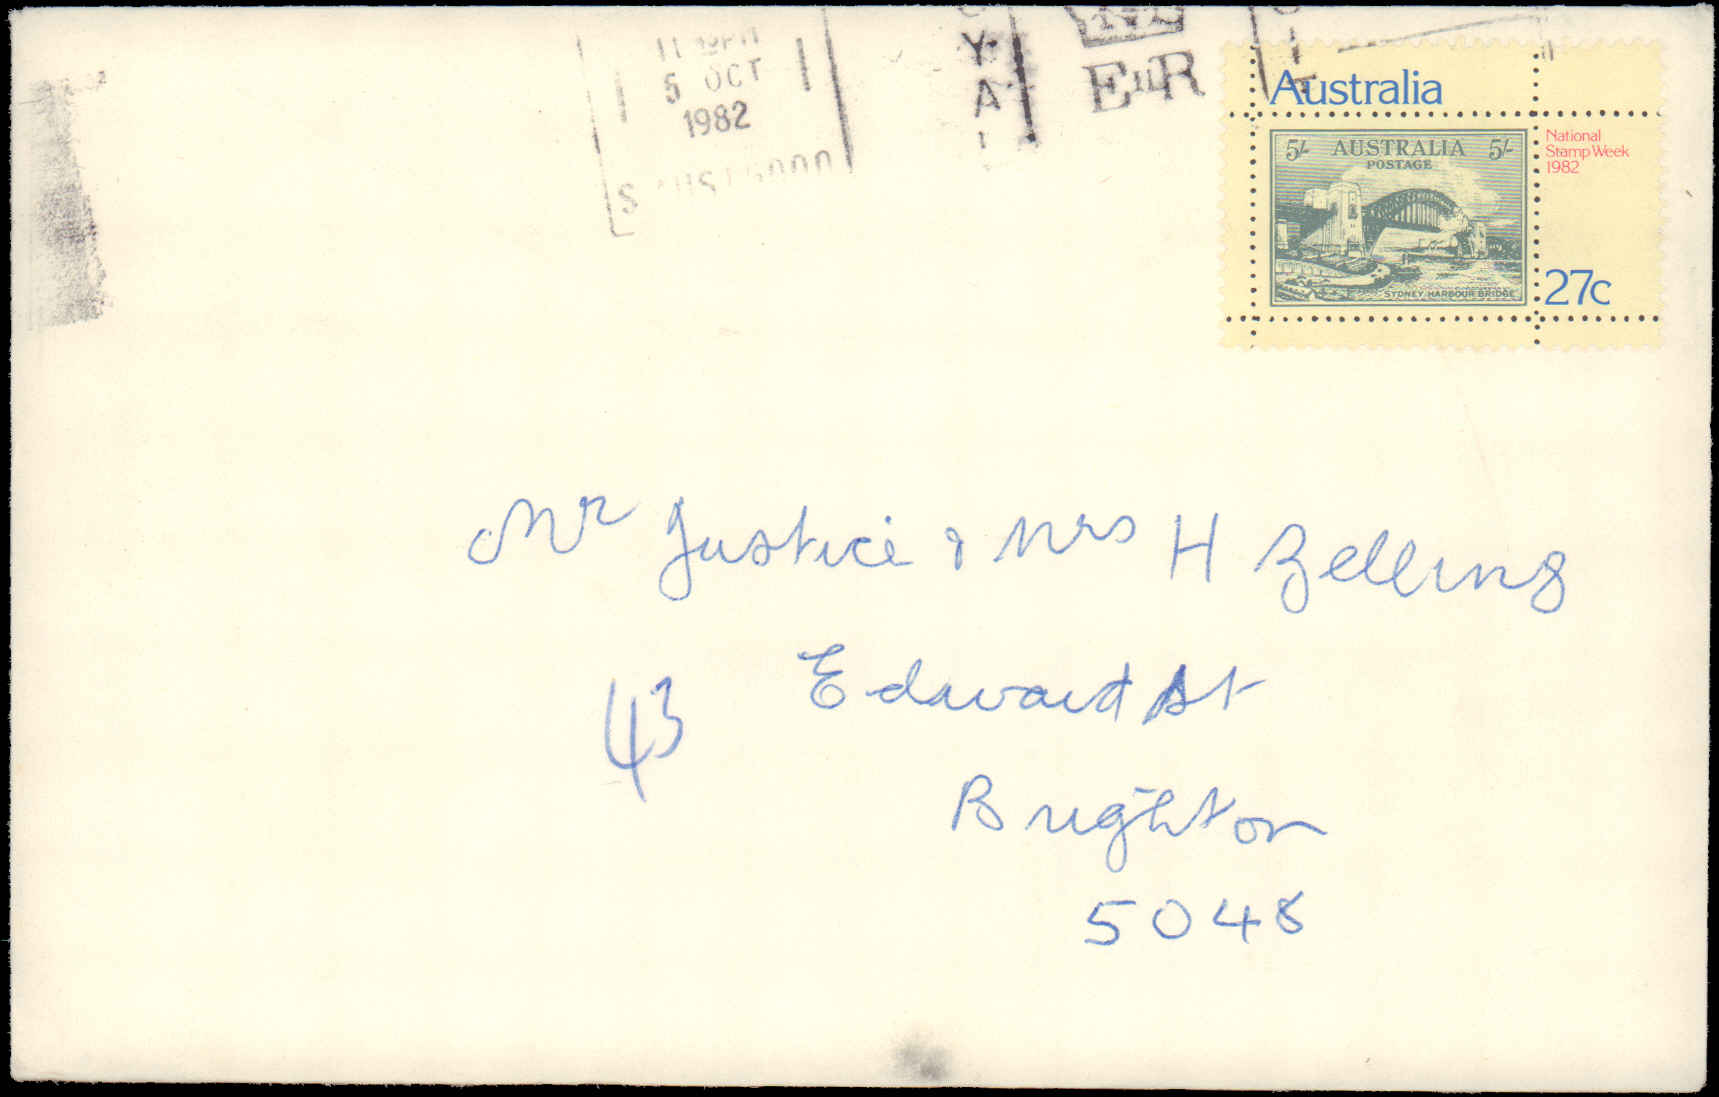 5 OCT
1982
Y.
A
E II R
Australia
5/- AUSTRALIA 5/-
POSTAGE
SYDNEY HARBOUR BRIDGE
National
Stamp Week
1982
27c
Mr Justice & Mrs H Zelling
43 Edward St
Brighton
5048